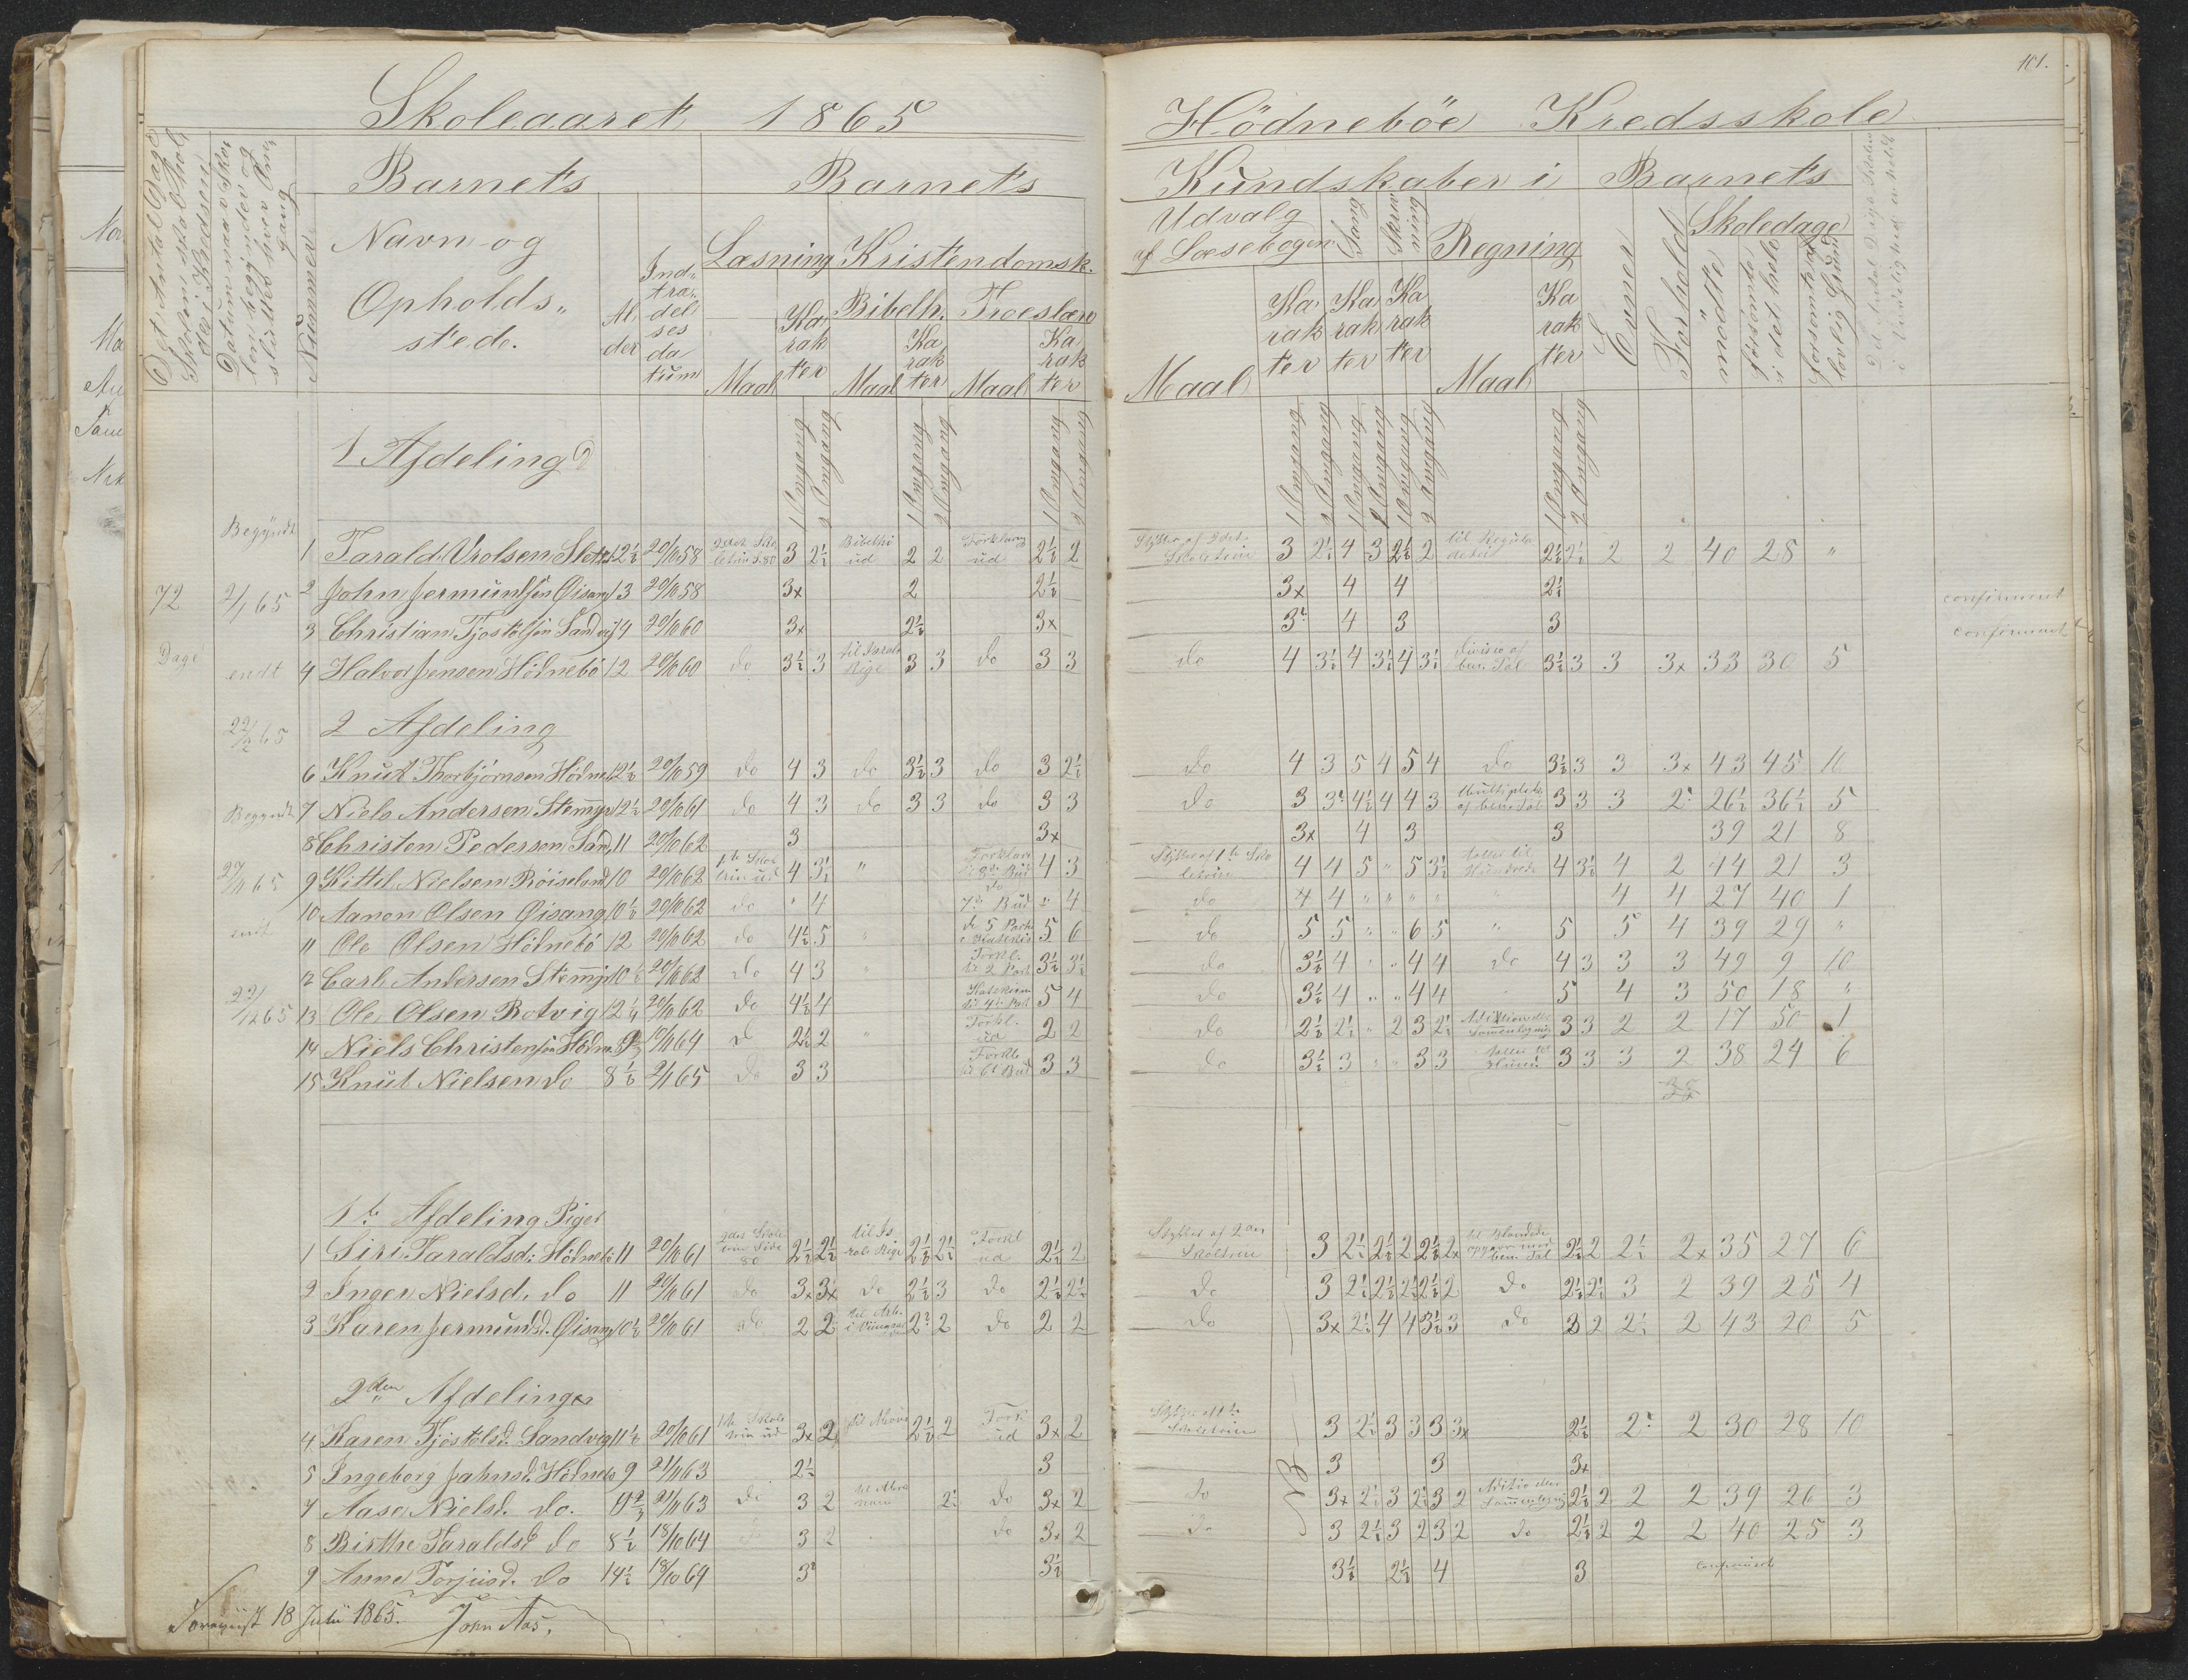 101.
Skoleaaret 1865
Hödneböe Kredsskole
Det Antal Dage Skolen skal holdes i Kredsen
Datum naar Skolen begyndes og sluttes hver Omgang
Nummer
Barnets
Navn og Opholdssted.
Alder
Indtrædelsesdatum
Barnets
Læsning
Kristendomsk.
Bibelh.
Troeslære
Maal
Karakter
Maal
Karakter
Maal
Karakter
Kundskaber i
Udvalg af Læsebogen
Sang
Skrivning
Regning
Maal
Karakter
Karakter
Karakter
Maal
Karakter
Barnets
Evner
Forhold
Skoledage
mødte
forsömte i det hele
forsømte af lovlig Grund
1 Omgang 2 Omgang 1 Omgang 2 Omgang 1 Omgang 2 Omgang
1 Omgang 2 Omgang 1 Omgang 2 Omgang 1 Omgang 2 Omgang 1 Omgang 2 Omgang
1 Afdeling
Begyndt
1 Tarald Vrolsen 12½ 20/10 58 3 2½ Bibelhi ud 2 2 Forklaring ud 2½ 2 Stykker af 2det Skoletrin 3 2½ 4 3 2½ 2 til Regula detri 2½ 2½ 2 2 40 28 "
72 2/1 65 2 John Jermundsen Øisang 13 20/10 58 3x 2 2½ 3x 4 4 2½ confirmeret
3 Christian Tjostolsen Sandvig 14 20/10 60 3x 2½ 3x 3 4 3 3 confirmeret
Dage endt 4 Halvor Jensen Hödnebö 12 20/10 60 do 3½ 3 3 3 do 3 3 do 4 3½ 4 3½ 4 3½ Divisio af ben. Tal 3½ 3 3 3x 33 30 5
22/2 65 2 Afdeling
6 Knut Thorbjörnsen Hödneb 12½ 20/10 59 do 4 3 do 3½ 3 do 3 2½ do 4 3 5 4 5 4 do 3½ 3 3 3x 43 45 11
Begyndt 7 Niels Andersen Stemmyr 12½ 20/10 61 do 4 3 do 3 3 do 3 3 do 3 3 4½ 4 4 3 Multiplik. af ben. Tal 3 3 3 2 26½ 36½ 5
8 Christen Pedersen Sand. 11 20/10 62 3 3x 3x 4 3 3 39 21 8
27/11 65 9 Kittil Nielsen Röiseland 10 20/10 62 1te Skoletrin ud 4 3½ " 4 3 Stykker af 1te Skoletrin 4 4 5 " 5 3½ 4 3½ 4 2 44 21 3
10 Aanon Olsen Øisang 10½ 20/10 62 do " 4 7de Bud " 4 do 4 4 " " " " 4 4 27 40 1
endt 11 Ole Olsen Hödnebö 12 20/10 62 do 4½ 5 de 5 Parter 5 6 do 5 5 " " 6 5 " 5 5 4 39 29 "
12 Carl Andersen Stemmyr 10½ 20/10 62 do 4 3 Forkl. til 2 Part 3½ 3½ do 3½ 4 " " 4 4 do 4 3 3 3 49 9 10
22/12 65 13 Ole Olsen Rotvig 12¼ 20/10 62 do 4½ 4 5 4 do 3½ 4 " " 4 4 5 4 3 50 18 "
14 Niels Christensen Hödn. 10/10 64 do 2½ 2 " Forkl. ud 2 2 do 2½ 2½ " 2 3 2½ 3 3 2 2 17 50 1
15 Knut Nielsen do 8½ 2/1 65 do 3 3 Forkl. til 6te Bud 3 3 do 3½ 3 " " 3 3 3 3 3 2 38 24 6
1te Afdeling Piger
1 Siri Taraldsd: Hödnebö 11 20/10 61 2det Skoletrin Side 80 2½ 2½ 2½ 2½ Forkl ud 2½ 2 Stykker af 2den Skoletrin 3 2½ 2½ 2 2½ 2x 2½ 2 2½ 2x 35 27 6
2 Inger Nielsd. do 11 20/10 61 do 3x 3x do 2½ 3 do 2½ 2½ do 3 2½ 2½ 2½ 2½ 2 do 2½ 2½ 3 2 39 25 4
3 Karen Jermundsd. Øisang 10½ 20/10 61 do 2 2 2 2 do 2 2 do 3x 2½ 4 4 3½ 3 do 3 2 2½ 2 43 20 5
2den Afdeling
4 Karen Tjöstolsd. Sandvig 11½ 20/10 61 1te Skoletrin ud 3x 2 2½ 2 Fork ud 3x 2 3 2½ 3 3 3 3x 2½ 2 2 30 28 10
5 Ingeborg Jahnsd. Hödneb 9 21/11 63 2½ 3 NB 3 3 3x
7 Aase Nielsd. do. 21/11 63 do 3 2 2½ do 3x 2 do 3x 2½ 3 2½ 3 2 2½ 2 2 2 39 26 3
8 Birthe Taraldsd do 8½ 18/10 64 3 2 do 3x 2 do 3 2½ 3 2 3 2 do 2½ 2 2 2 40 25 3
9 Anne Torjusd. do 14½ 18/10 64 3 3½ 3½ 2½ 4 3 confirmeret
18 Juli 1865. John Aas.